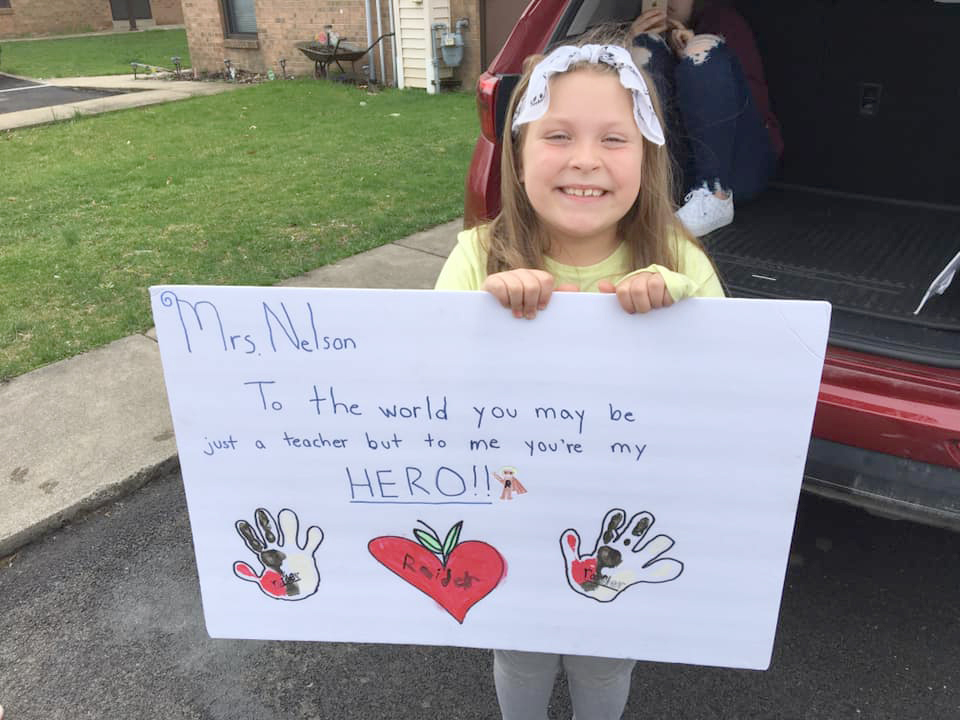 Mrs. Nelson
To the world you may be
just a teacher but to me you're my
HERO!!
Raider